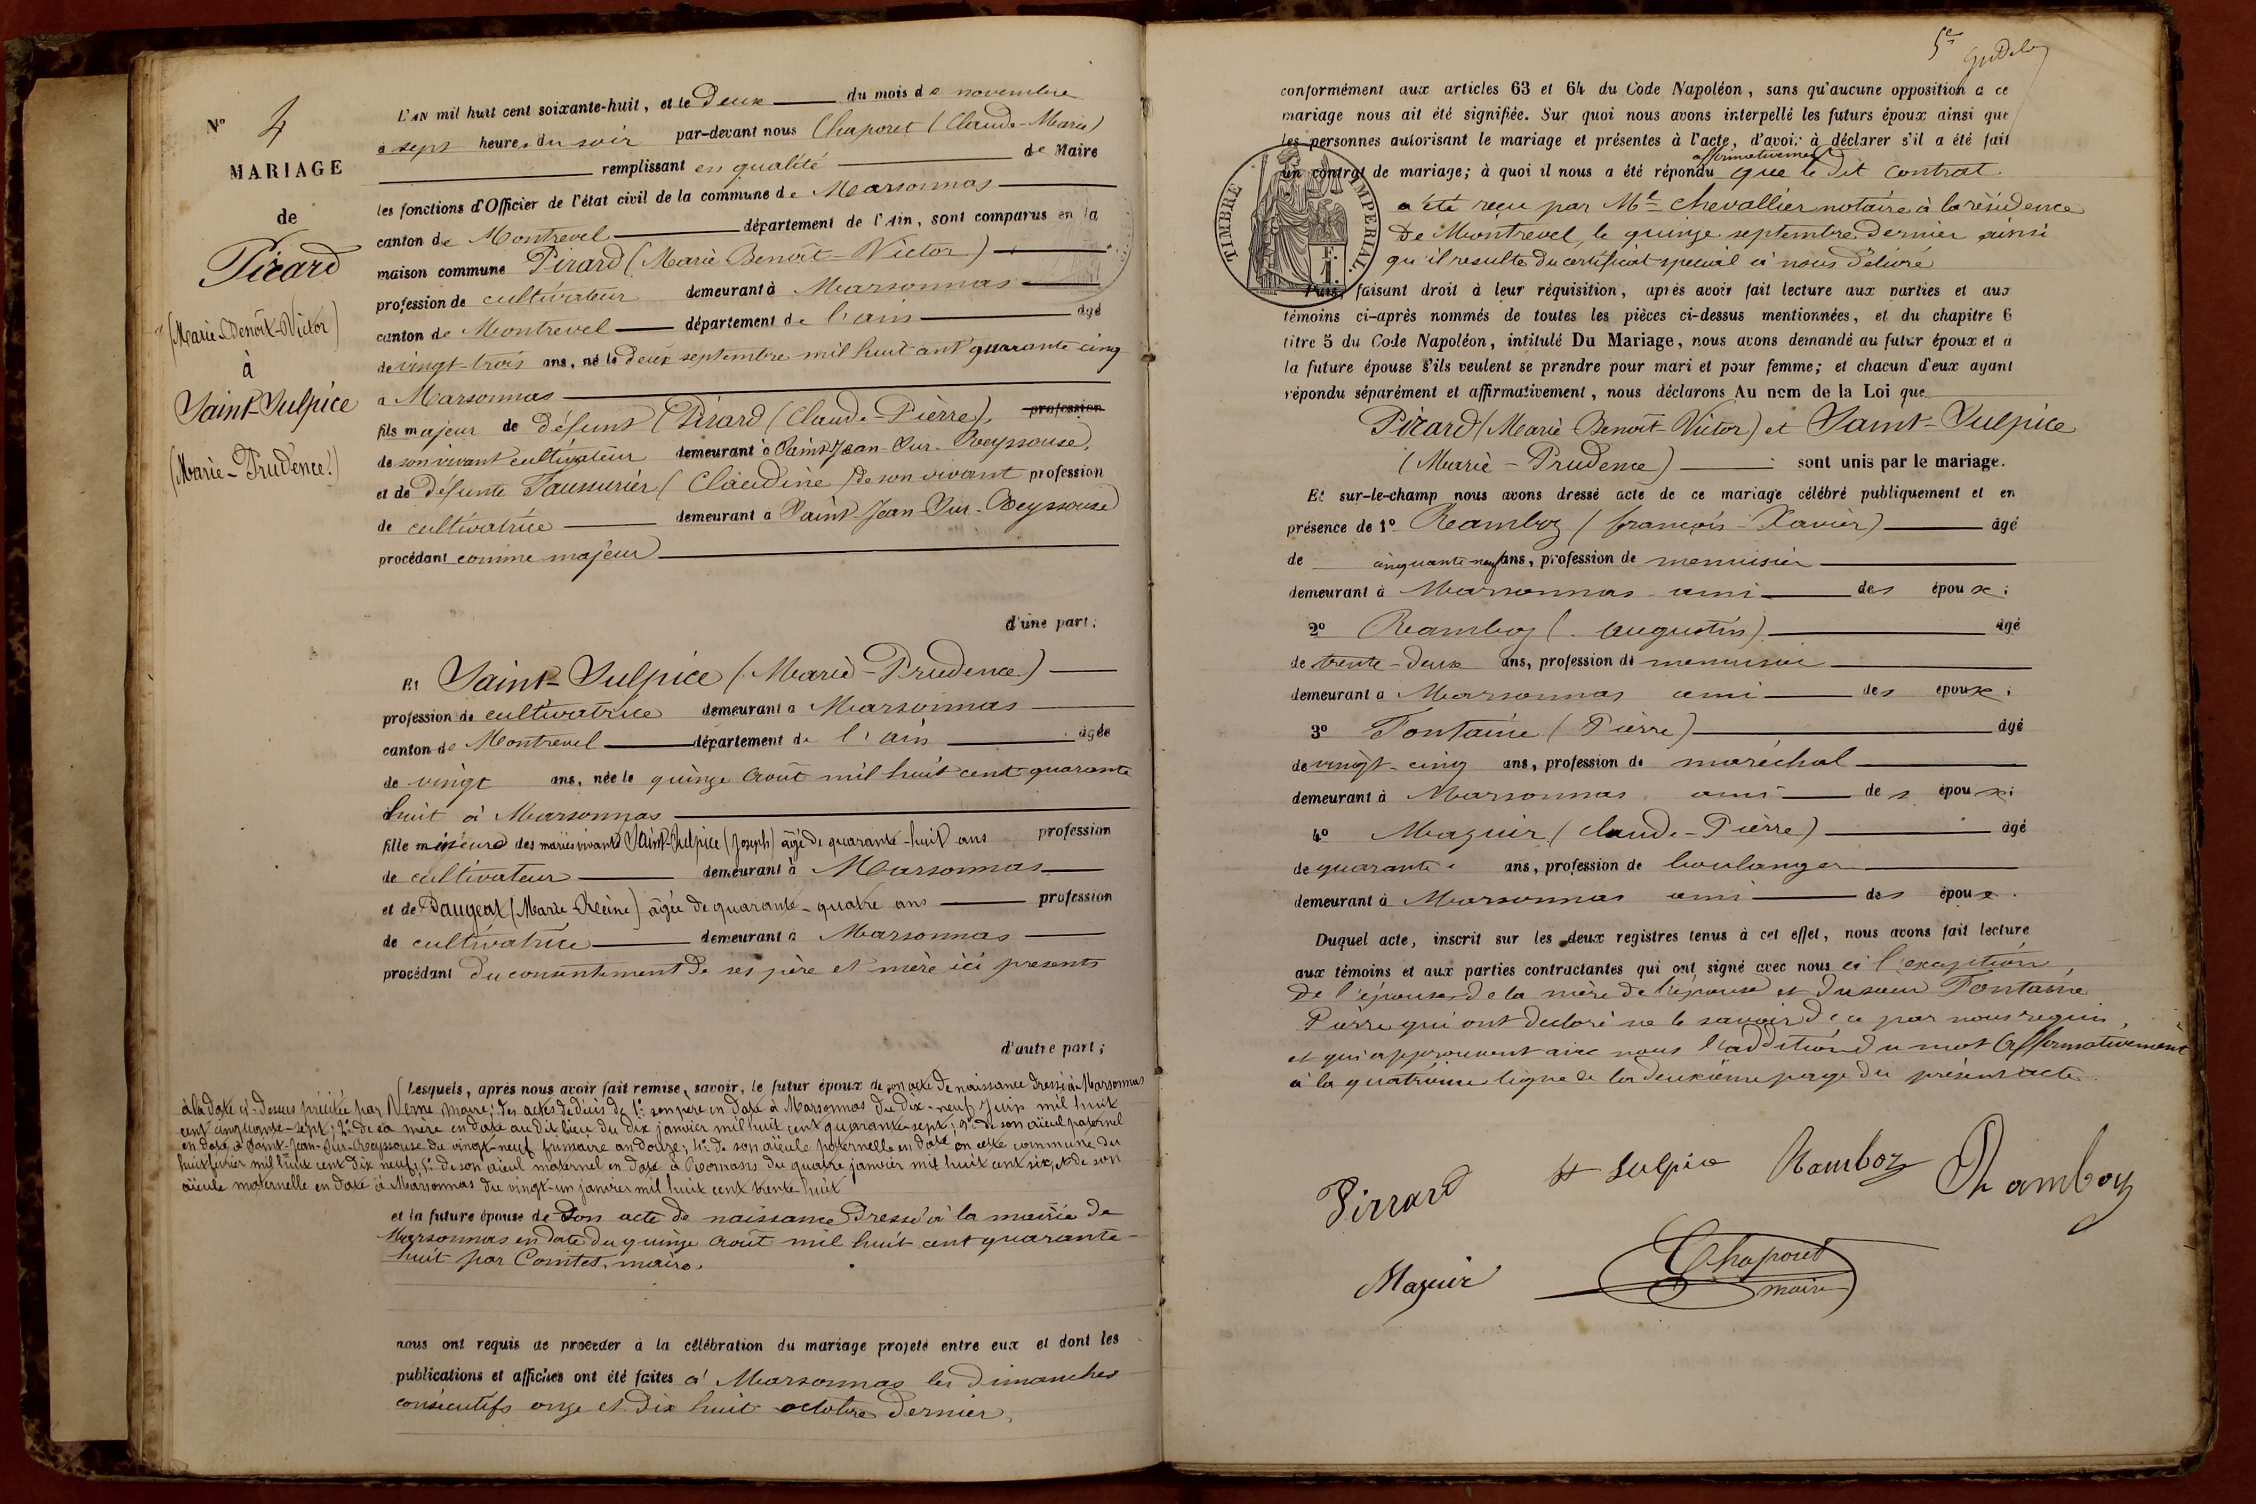 N° 4
MARIAGE
de
Pirard
(Marie-Benoît-Victor)
à
Saint Sulpice
(Marie-Prudence)
L'AN mil huit cent soixante-huit, et le deux du mois de novembre
à sept heures du soir par-devant nous Chaporet (Claude-Marie)
remplissant en qualité de Maire
les fonctions d'Officier de l'état civil de la commune de Marsonnas
canton de Montrevel département de l'Ain, sont comparus en la
maison commune Pirard (Marie Benoît-Victor)
profession de cultivateur demeurant à Marsonnas
canton de Montrevel département de l'ain âgé
de vingt-trois ans, né le deux septembre mil huit cent quarante cinq
à Marsonnas
fils majeur de défunt Pirard (Claude-Pierre), profession
de son vivant cultivateur demeurant à Saint Jean-Sur-Reyssouse,
et de défunte (Claudine) de son vivant profession
de cultivatrice demeurant à Saint-Jean-Sur-Reyssouse
procédant comme majeur
d'une part;
Et Saint-Sulpice (Marie-Prudence)
profession de cultivatrice demeurant à Marsonnas
canton de Montrevel département de l'ain âgée
de vingt ans, née le quinze août mil huit cent quarante
huit à Marsonnas
fille mineure des mariés vivants Saint-Sulpice (Joseph) âgé de quarante-huit ans profession
de cultivateur demeurant à Marsonnas
et de (Marie-Reine) âgée de quarante-quatre ans profession
de cultivatrice demeurant à Marsonnas
procédant du consentement de ses père et mère ici présents
d'autre part;
Lesquels, après nous avoir fait remise, savoir, le futur époux de son acte de naissance dressé à Marsonnas
à la date ci-dessus précitée par Verne maire; des actes de décis de 1° son père en date à Marsonnas du dix-neuf Juin mil huit
cent cinquante-sept; 2° de sa mère en date au dit lieu du dix janvier mil huit cent quarante-sept; 3° de son aïeul paternel
en date à Saint-Jean-Sur-Reyssouse du vingt-neuf frimaire an douze; 4° de son aïeule paternelle en date en cette commune du
huit février mil huit cent dix neuf; 5° de son aïeul maternel en date à du quatre janvier mil huit cent six, et de son
aïeule maternelle en date à Marsonnas du vingt-un janvier mil huit cent trente huit
et la future épouse de son acte de naissance dressé à la mairie de
Marsonnas en date du quinze août mil huit cent quarante-
huit par Comtet, maire.
nous ont requis de procéder à la célébration du mariage projeté entre eux et dont les
publications et affiches ont été faites à Marsonnas les dimanches
consécutifs onze et dix huit octobre dernier,
5e
conformément aux articles 63 et 64 du Code Napoléon, sans qu'aucune opposition a ce
mariage nous ait été signifiée. Sur quoi nous avons interpellé les futurs époux ainsi que
les personnes autorisant le mariage et présentes à l'acte, d'avoir à déclarer s'il a été fait
affirmativement
un contrat de mariage; à quoi il nous a été répondu que le dit contrat
a été reçu par Me Chevallier notaire à la résidence
de Montrevel, le quinze septembre dernier ainsi
qu'il resulte du certificat special à nous délivré
TIMBRE IMPERIAL.
Puis, faisant droit à leur réquisition, après avoir fait lecture aux parties et aux
témoins ci-après nommés de toutes les pièces ci-dessus mentionnées, et du chapitre 6
titre 5 du Code Napoléon, intitulé Du Mariage, nous avons demandé au futur époux et à
la future épouse s'ils veulent se prendre pour mari et pour femme; et chacun d'eux ayant
répondu séparément et affirmativement, nous déclarons Au nom de la Loi que
Pirard (Marie Benoît-Victor) et Saint-Sulpice
(Marie-Prudence) sont unis par le mariage.
Et sur-le-champ nous avons dressé acte de ce mariage célébré publiquement et en
présence de 1° Ramboz (françois-Xavier) âgé
de cinquante-neuf ans, profession de menuisier
demeurant à Marsonnas ami des époux;
2° Ramboz (augustin) âgé
de trente-deux ans, profession de menuisier
demeurant à Marsonnas ami des époux;
3° Fontaine (Pierre) âgé
de vingt-cinq ans, profession de maréchal
demeurant à Marsonnas ami des époux;
4° Mazuir (claude-Pierre) âgé
de quarante ans, profession de boulanger
demeurant à Marsonnas ami des époux.
Duquel acte, inscrit sur les deux registres tenus à cet effet, nous avons fait lecture
aux témoins et aux parties contractantes qui ont signé avec nous à l'exception
de l'épouse, de la mère de l'épouse et du sieur Fontaine
Pierre qui ont declaré ne le savoir de ce par nous requis,
et qui approuvent avec nous l'addition du mot affirmativement
à la quatrième ligne de la deuxieme page du présent acte.
Pirrard St Sulpice Ramboz Ramboz
Mazuir Chaporet
maire